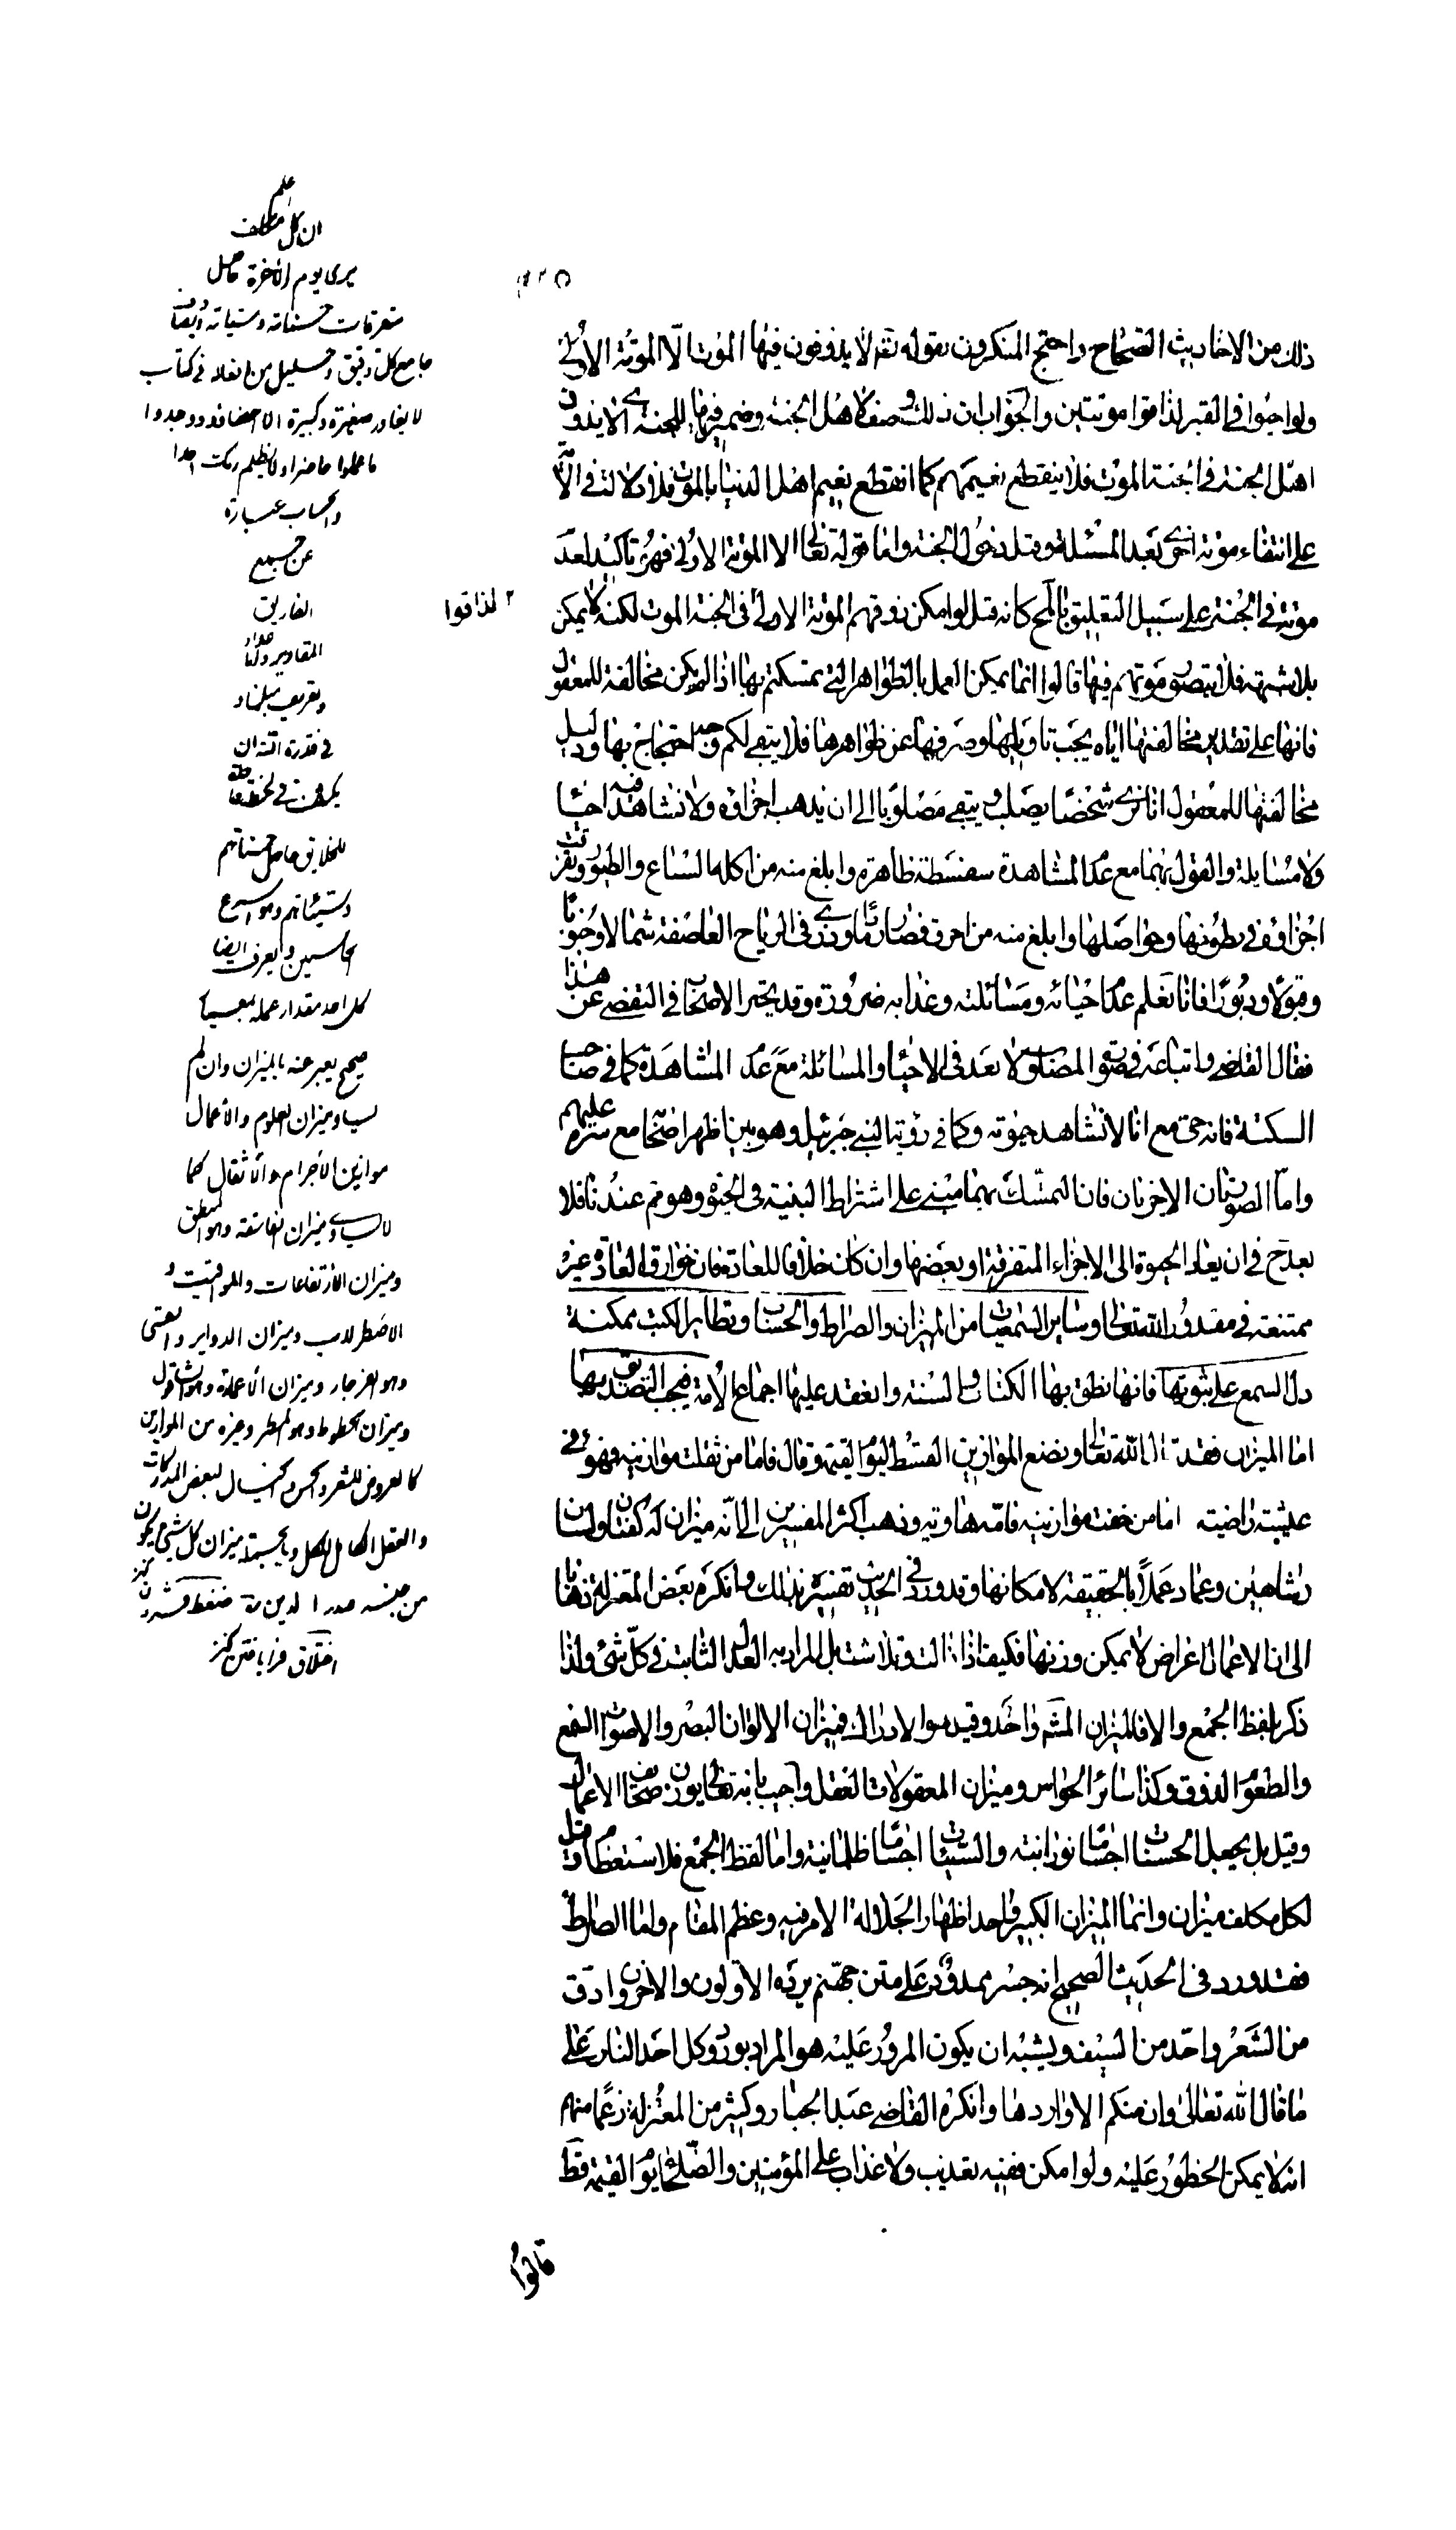 ٤٢٥
ذلك من الاحاديث الصحاح واحتج المنكرون بقوله تعالى لا يذوقون فيها الموت الّا الموتة الاولى
ولو احيوا في القبر لذاقوا موتتين والجواب ان ذلك وصف لاهل الجنة وضمير فيها للجنة اى لا يذوق
اهل الجنة في الجنة الموت فلا ينقطع نعيمهم كما انقطع نعيم اهل الدنيا بالموت فلا دلالة في الآية
على انتفاء موتة اخرى بعد المسئلة وقبل دخول الجنة واما قوله تعالى الا الموتة الاولى فهو تاكيد لعدم
موتهم في الجنة على سبيل التعليق بالمحال كانه قيل لو امكن ذوقهم الموتة الاولى في الجنة الموت لكنه لا يمكن
بلا شبهة فلا يتصور موتهم فيها قالوا انما يمكن العمل بالظواهر التى تمسكتم بها اذا لم يكن مخالفة للمعقول
فانها على تقدير مخالفتها اياه يجب تاويلها وصرفها عن ظواهرها فلا يبقى لكم وجه احتجاج بها ودليل
مخالفتها للمعقول انا نرى شخصا يصلب ويبقى مصلوبا الى ان يذهب اجزاؤه ولا نشاهد فيه احياء
ولا مسايلة والقول بهما مع عدم المشاهدة سفسطة ظاهرة وابلغ منه من اكله السباع والطيور وتفرقت
اجزاؤه في بطونها وحواصلها وابلغ منه من احرق فصار رمادا وذرى في الرياح العاصفة شمالا وجنوبا
وقبولا ودبورا فانا نعلم عدم احيائه ومسائلته وعذابه ضرورة وقد تحير الاصحاب في التفصى عن هذا
فقال القاضى واتباعه في صورة المصلوب لا بعد في الاحياء والمسائلة مع عدم المشاهدة كما في صاحب
السكتة فانه حى مع انا لا نشاهد حيوته وكما في رؤية النبى جبرئيل وهو بين اظهر اصحابه مع ستره عليهم
واما الصورتان الاخريان فان التمسك بهما مبنى على اشتراط البنية في الحيوة وهو مم عندنا فلا
بعد ح في ان يعاد الحيوة الى الاجزاء المتفرقة او بعضها وان كان خلافا للعادة فان خوارق العادة غير
ممتنعة في مقدور الله تعالى وساير السمعيات من الميزان والصراط والحساب وتطاير الكتب ممكنة
دل السمع على ثبوتها فانها نطق بها الكتاب والسنة وانعقد عليها اجماع الامة فيجب التصديق بها
اما الميزان فقد قال الله تعالى ونضع الموازين القسط ليوم القيمة وقال فاما من ثقلت موازينه فهو في
عيشة راضية اما من خفت موازينه فامه هاوية وذهب اكثر المفسرين الى انه ميزان له كفتان ولسان
وشاهين وعماد عملاً بالحقيقة لامكانها وقد ورد في الحديث تفسيره بذلك وانكره بعض المعتزلة ذهابا
الى ان الاعمال اعراض لا يمكن وزنها فكيف اذا زالت وتلاشت بل المراد به العدل الثابت في كل شئ ولذا
ذكر بلفظ الجمع والا فالميزان المشهور واحد وقيل هو الادراك فميزان الالوان البصر والاصوات السمع
والطعوم الذوق وكذا سائر الحواس وميزان المعقولات العقل واجيب بانه تعالى يوزن صحائف الاعمال
وقيل بل يجعل الحسنات اجساما نورانية والسيئات اجساما ظلمانية واما لفظ الجمع فللاستعظام وقيل
لكل مكلف ميزان وانما الميزان الكبير واحد اظهارا لجلالة الامر فيه وعظم المقام واما الصراط
فقد ورد في الحديث الصحيح انه جسر ممدود على متن جهنم يرده الاولون والاخرون ادق
من الشعر واحد من السيف ويشبه ان يكون المرور عليه هو المراد بورود كل احد النار على
ما قال الله تعالى وان منكم الا واردها وانكره القاضى عبد الجبار وكثير من المعتزلة زعما منهم
انه لا يمكن الخطور عليه ولو امكن ففيه تعذيب ولا عذاب على المؤمنين والصلحاء يوم القيمة قط
قالوا
٢ لذاقوا
علم
ان كل مكلف
يرى يوم الآخرة حاصل
متفرقات حسناته وسيئاته
جامع كل دقيق وجليل من افعاله في كتاب
لا يغادر صغيرة وكبيرة الا احصاها ووجدوا
ما عملوا حاضرا ولا يظلم ربك احدا
والحساب عبارة
عن جمع
تفاريق
المقادير والاعداد
وتعريف مبلغها و
في قدرة الله ان
يكشف في لحظة
للخلايق حاصل حسناتهم
وسيئاتهم وهو اسرع
الحاسبين ويعرف ايضا
كل احد مقدار عمله بمعيار
صحيح يعبر عنه بالميزان وان لم
يساو ميزان العلوم والأعمال
موازين الأجرام والأثقال كما
لا يساوى ميزان الفلسفة وهو المنطق
وميزان الارتفاعات والمواقيت و
الاضطرلاب وميزان الدواير والقسى
وهو الفرجار وميزان الأعمدة وهو الشاقول
وميزان الخطوط وهو المسطر وغيره من الموازين
كالعروض للشعر والحس والخيال لبعض المدركات
والعقل الكامل للكل وبالجملة ميزان كل شئ يكون
من جنسه صدر الدين ره